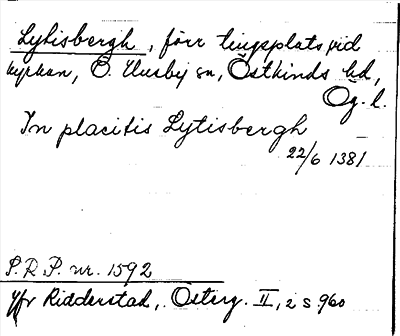 Lytisbergh, förr tingsplats vid
kyrkan, Ö. Husby sn, Östkinds hd,
Ög. l.
In placitis Lytisbergh
22/6 1381
S.R.P. nr. 1592
Jfr Ridderstad, Österg. II, 2 s. 960